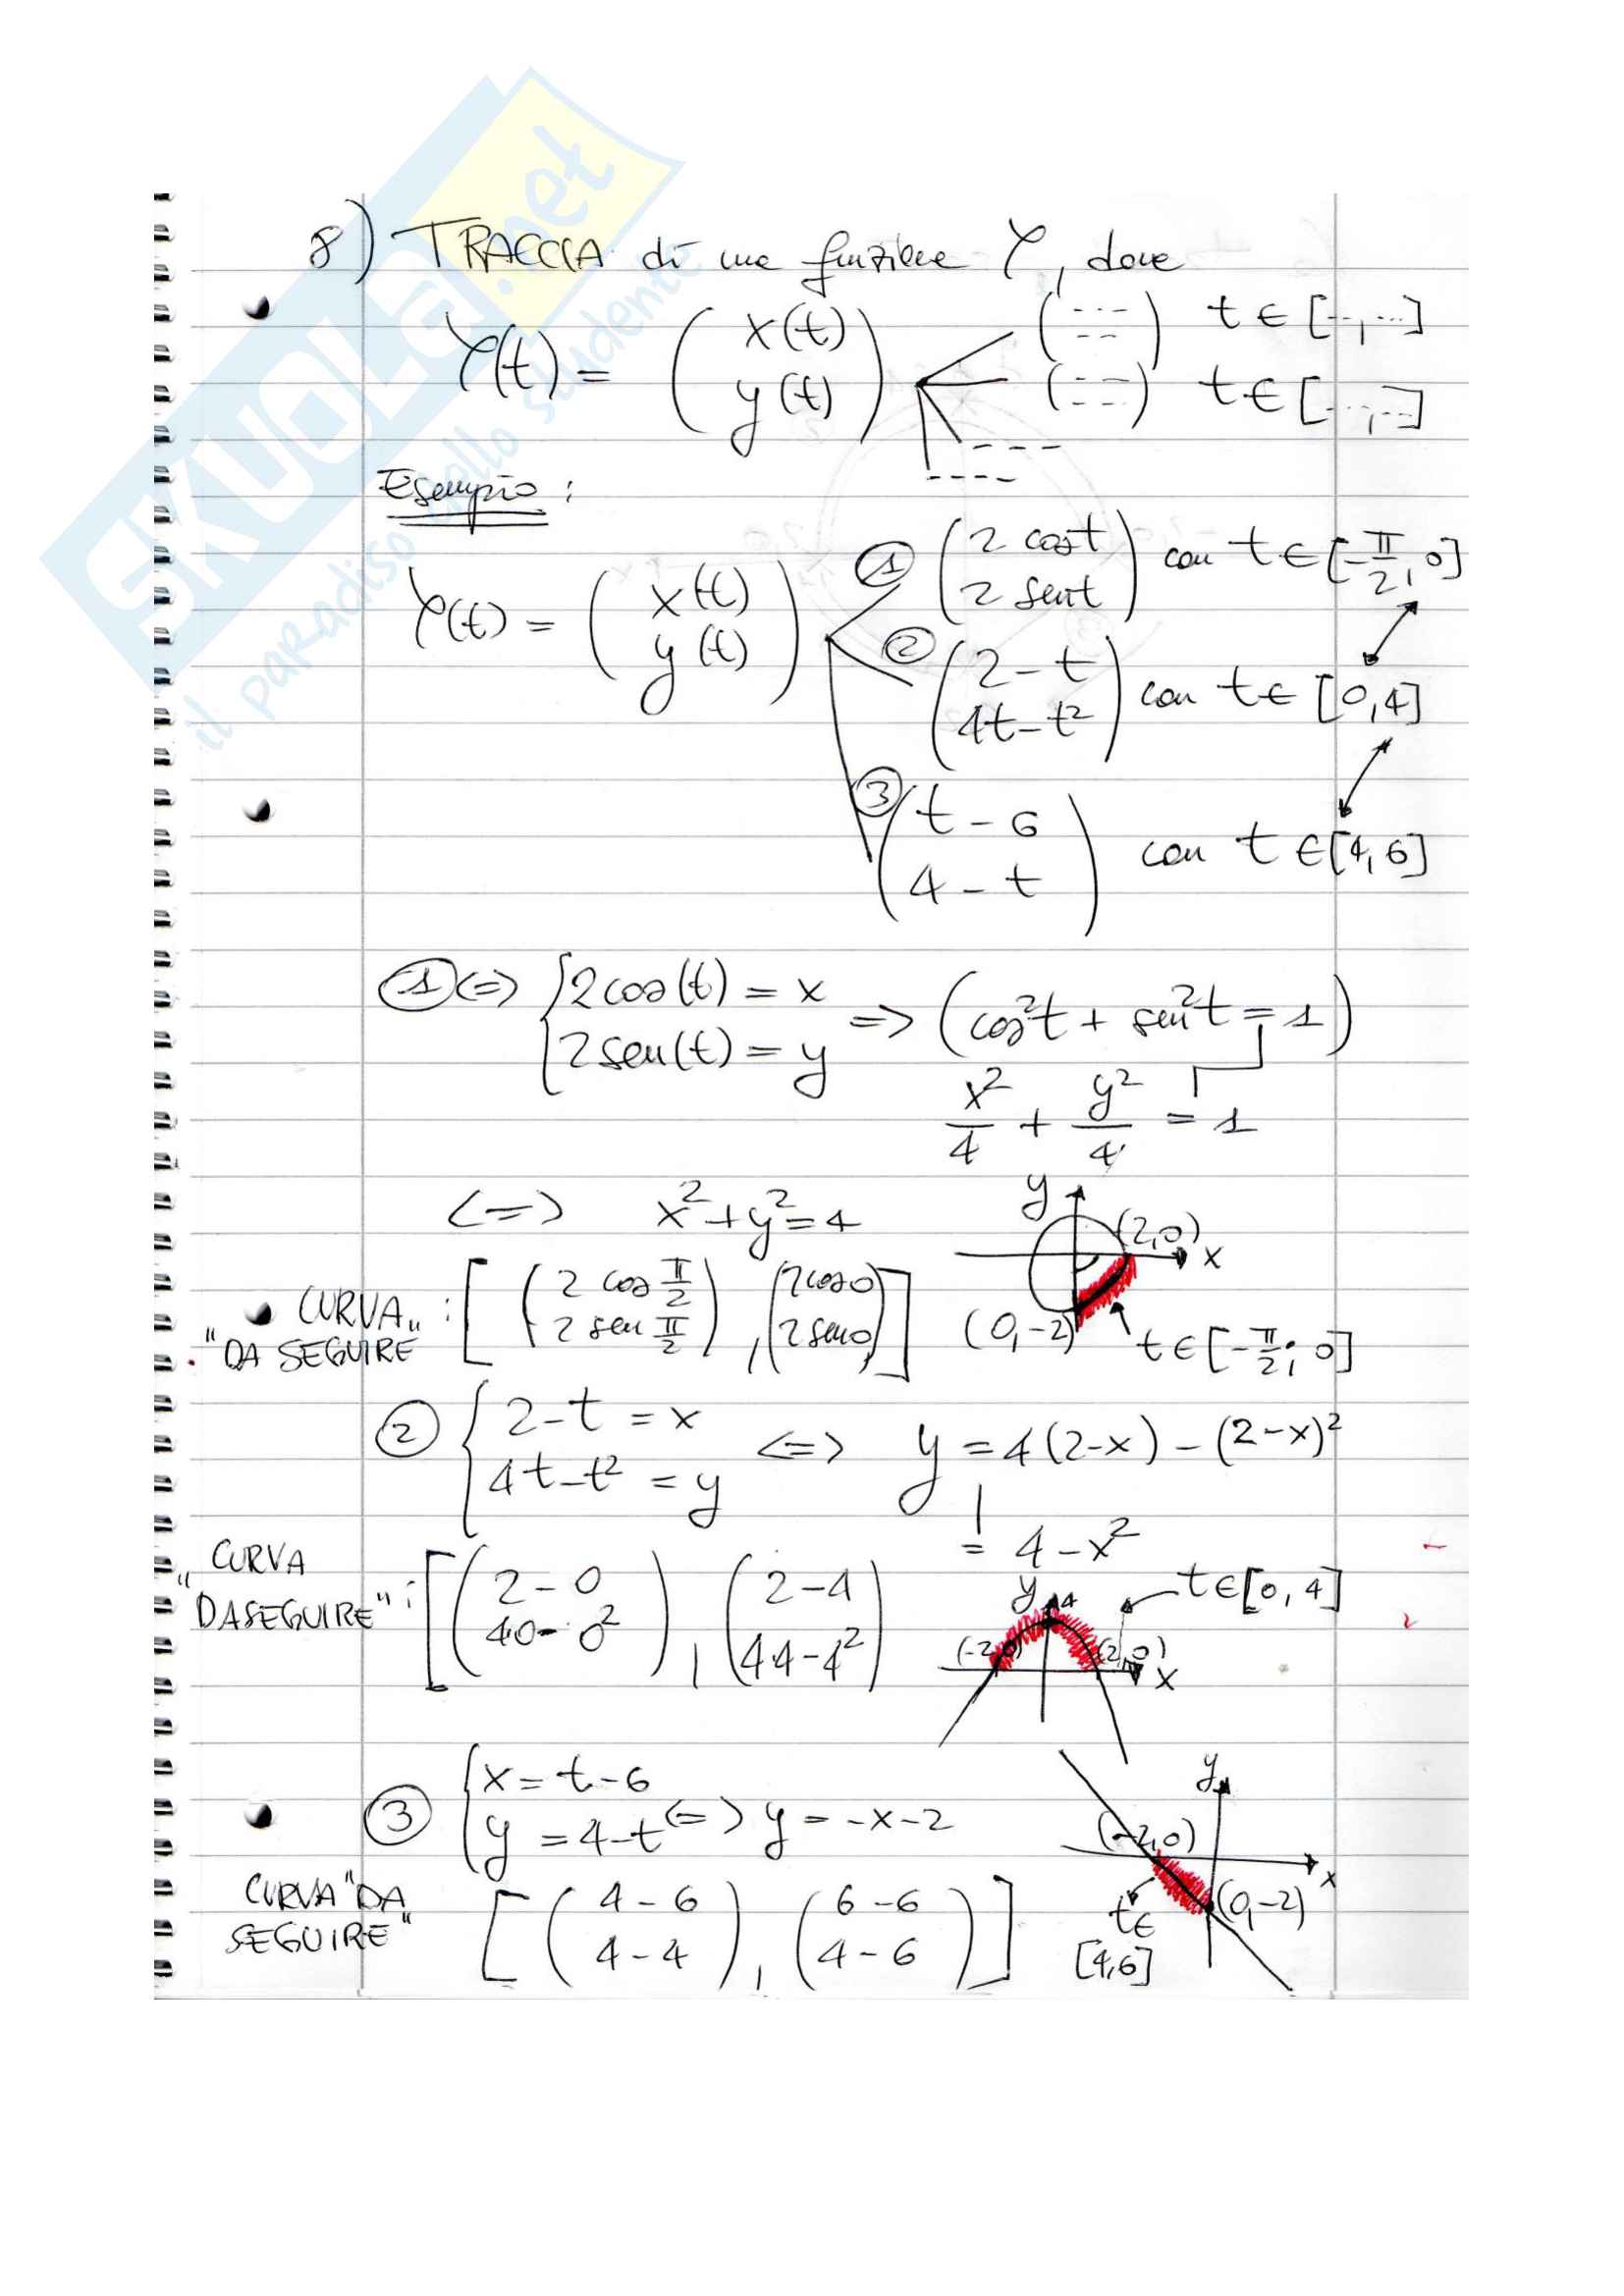 SKUOLA.net
il paradiso dello studente
8) TRACCIA di una funzione γ, dove
γ(t) = ( x(t) y(t) ) ( --- -- ) t ∈ [--, ...]
( -- -- ) t ∈ [---, --]
- - - -
- - - -
Esempio :
γ(t) = ( x(t) y(t) ) ① ( 2 cos t 2 sen t ) con t ∈ [-π/2, 0]
② ( 2 - t 4t - t² ) con t ∈ [0, 4]
③ ( t - 6 4 - t ) con t ∈ [4, 6]
① <=> { 2 cos(t) = x 2 sen(t) = y => ( cos²t + sen²t = 1 )
x²/4 + y²/4 = 1
<=> x² + y² = 4
y (2,0) x
CURVA : [ ( 2 cos π/2 - 2 sen π/2 ) , ( 2 cos 0 2 sen 0 ) ] (0,-2)
"DA SEGUIRE" t ∈ [-π/2; 0]
② { 2 - t = x 4t - t² = y <=> y = 4(2-x) - (2-x)²
= 4 - x²
"CURVA DA SEGUIRE" : [ ( 2 - 0 4·0 - 0² ) , ( 2 - 4 4·4 - 4² )
y 4 t ∈ [0, 4]
(-2,0) (2,0) x
③ { x = t - 6 y = 4 - t <=> y = -x - 2
y (-2,0) x
CURVA "DA SEGUIRE" [ ( 4 - 6 4 - 4 ) , ( 6 - 6 4 - 6 ) ]
t ∈ [4,6] (0,-2)